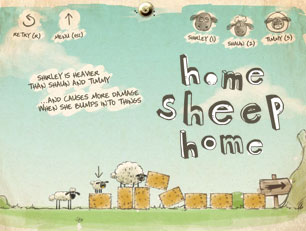 RETRY (R)
MENU (ESC)
SHIRLEY (1)
SHAUN (2)
TIMMY (3)
SHIRLEY IS HEAVIER
THAN SHAUN AND TIMMY
...AND CAUSES MORE DAMAGE
WHEN SHE BUMPS INTO THINGS
home
sheep
home